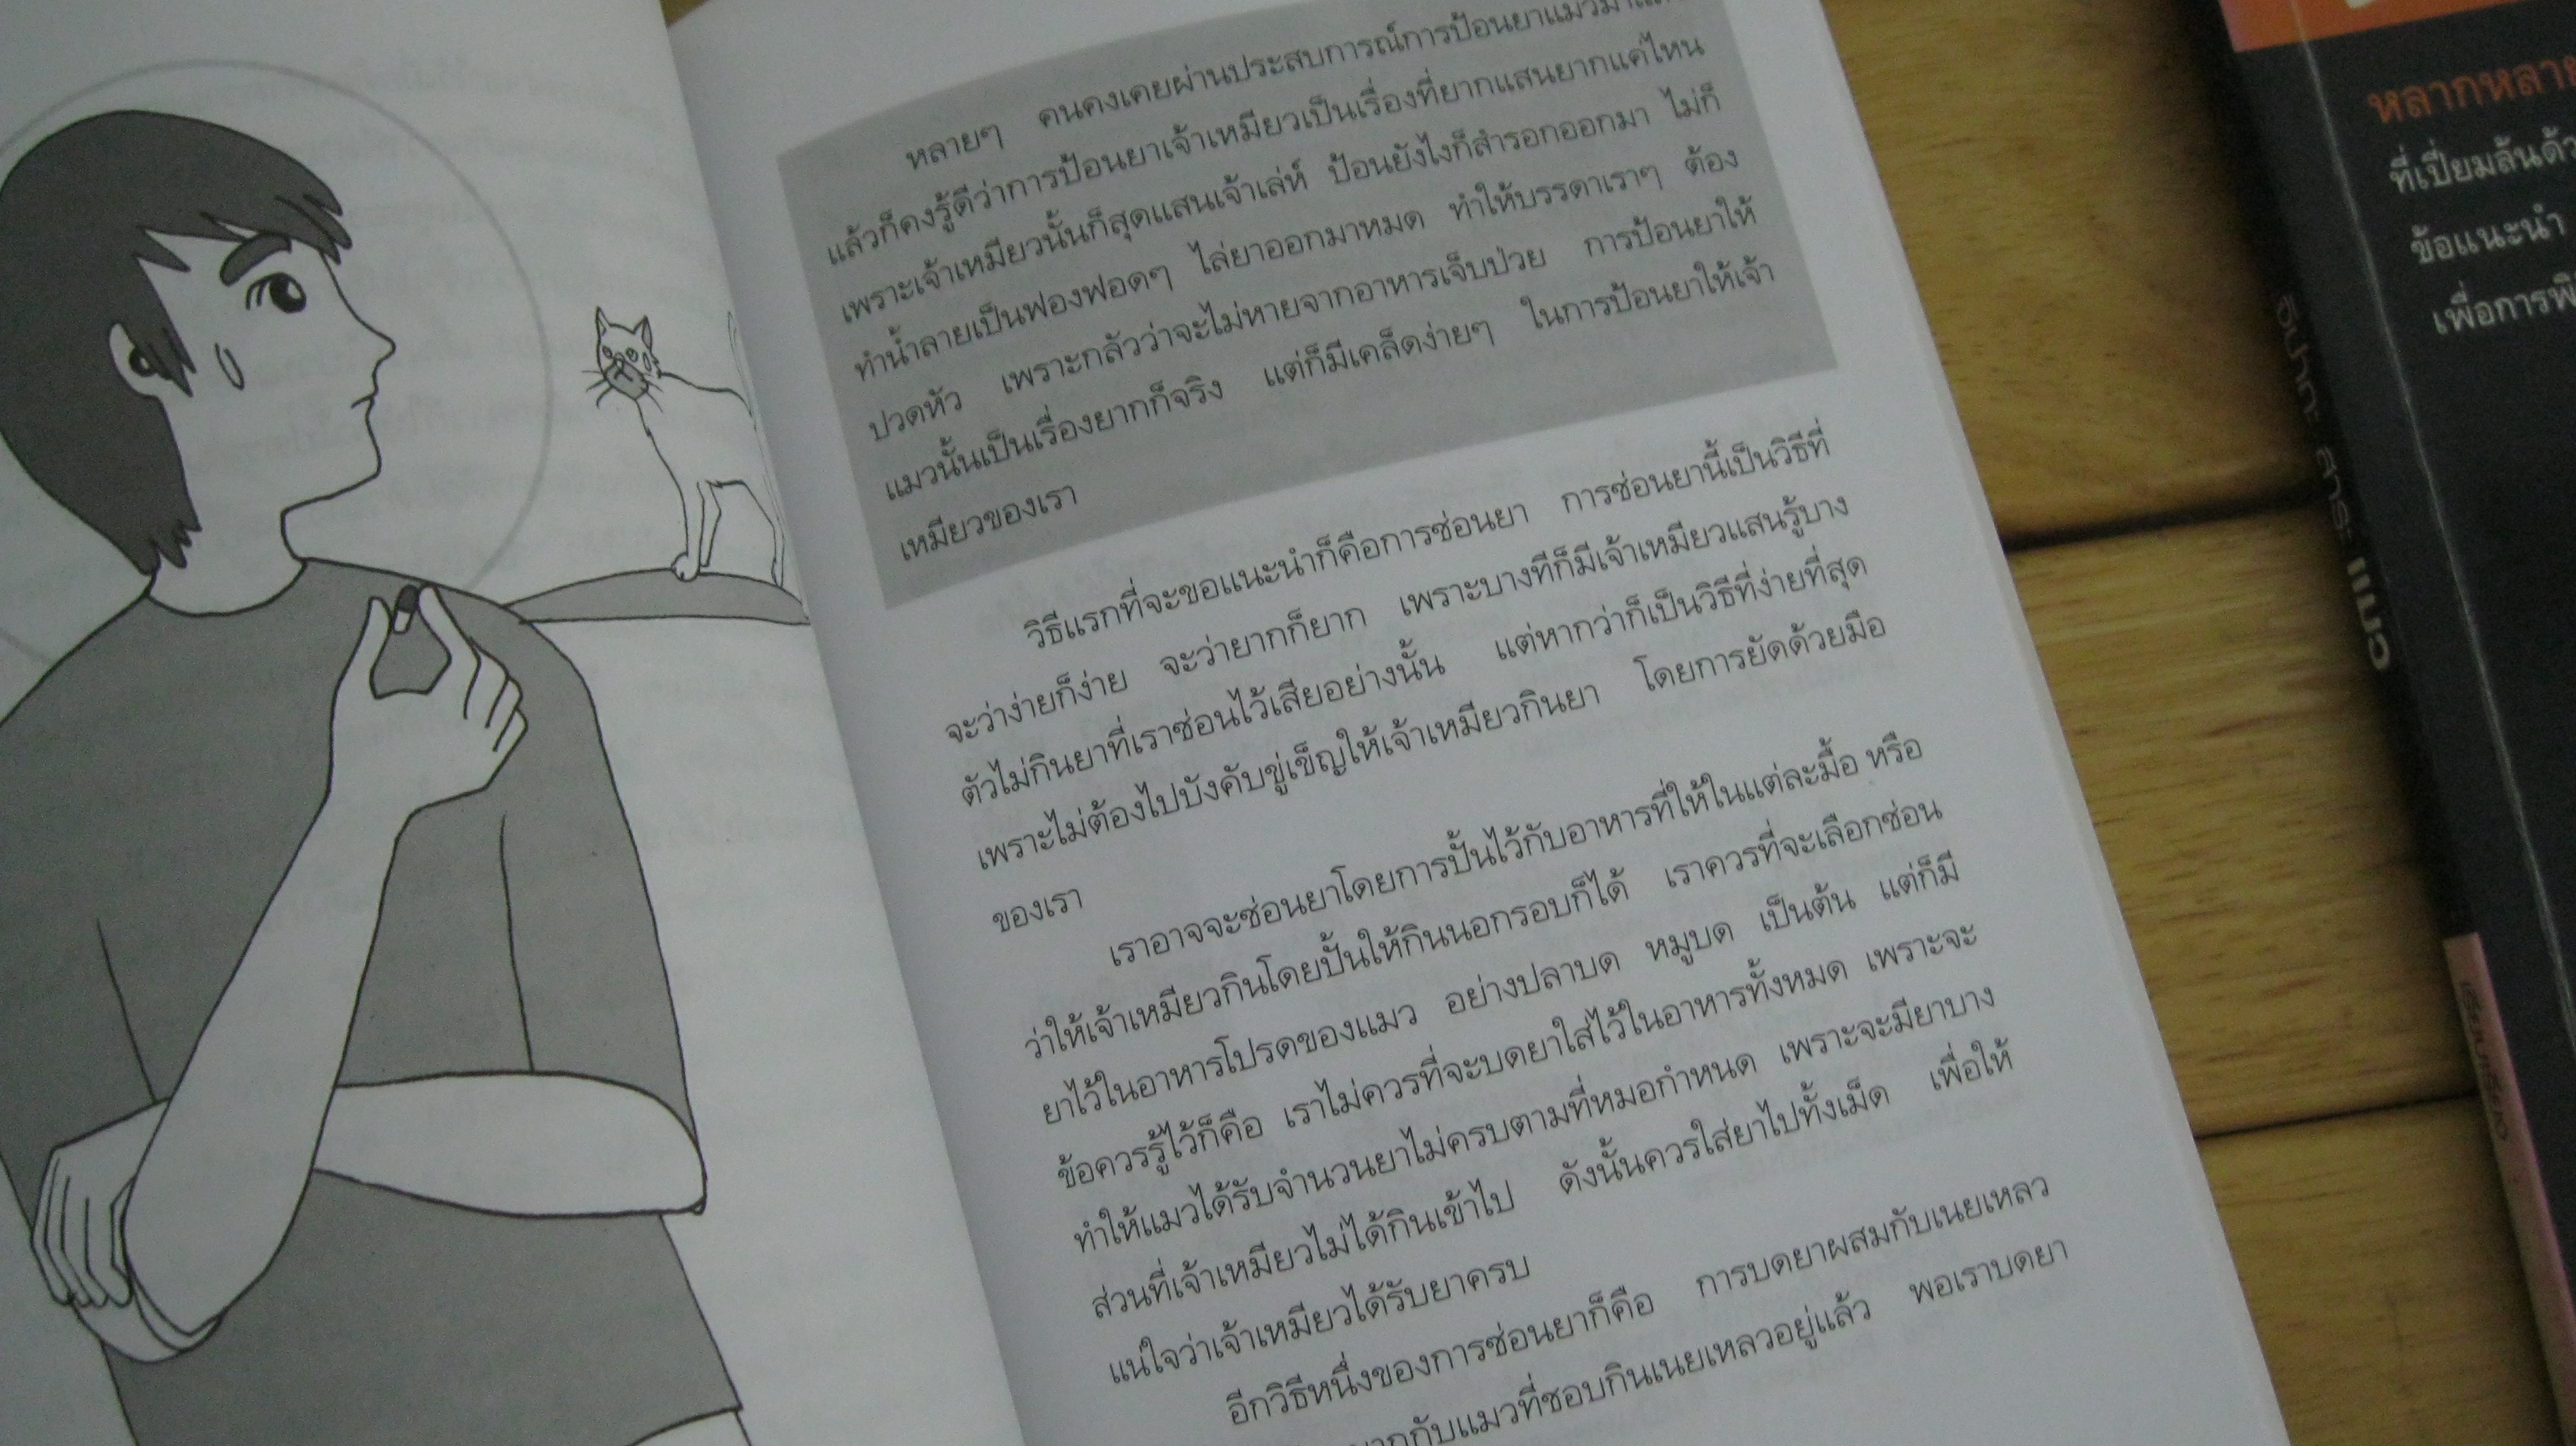 หลายๆ คนคงเคยผ่านประสบการณ์การป้อนยาแมวมา
แล้วก็คงรู้ดีว่าการป้อนยาเจ้าเหมียวเป็นเรื่องที่ยากแสนยากแค่ไหน
เพราะเจ้าเหมียวนั้นก็สุดแสนเจ้าเล่ห์ ป้อนยังไงก็สำรอกออกมา ไม่ก็
ทำน้ำลายเป็นฟองฟอดๆ ไล่ยาออกมาหมด ทำให้บรรดาเราๆ ต้อง
ปวดหัว เพราะกลัวว่าจะไม่หายจากอาหารเจ็บป่วย การป้อนยาให้
แมวนั้นเป็นเรื่องยากก็จริง แต่ก็มีเคล็ดง่ายๆ ในการป้อนยาให้เจ้า
เหมียวของเรา
วิธีแรกที่จะขอแนะนำก็คือการซ่อนยา การซ่อนยานี้เป็นวิธีที่
จะว่าง่ายก็ง่าย จะว่ายากก็ยาก เพราะบางทีก็มีเจ้าเหมียวแสนรู้บาง
ตัวไม่กินยาที่เราซ่อนไว้เสียอย่างนั้น แต่หากว่าก็เป็นวิธีที่ง่ายที่สุด
เพราะไม่ต้องไปบังคับขู่เข็ญให้เจ้าเหมียวกินยา โดยการยัดด้วยมือ
ของเรา
เราอาจจะซ่อนยาโดยการปั้นไว้กับอาหารที่ให้ในแต่ละมื้อ หรือ
ว่าให้เจ้าเหมียวกินโดยปั้นให้กินนอกรอบก็ได้ เราควรที่จะเลือกซ่อน
ยาไว้ในอาหารโปรดของแมว อย่างปลาบด หมูบด เป็นต้น แต่ก็มี
ข้อควรรู้ไว้ก็คือ เราไม่ควรที่จะบดยาใส่ไว้ในอาหารทั้งหมด เพราะจะ
ทำให้แมวได้รับจำนวนยาไม่ครบตามที่หมอกำหนด เพราะจะมียาบาง
ส่วนที่เจ้าเหมียวไม่ได้กินเข้าไป ดังนั้นควรใส่ยาไปทั้งเม็ด เพื่อให้
แน่ใจว่าเจ้าเหมียวได้รับยาครบ
อีกวิธีหนึ่งของการซ่อนยาก็คือ การบดยาผสมกับเนยเหลว
กับแมวที่ชอบกินเนยเหลวอยู่แล้ว พอเราบดยา
หลากหลาย
ที่เปี่ยมล้นด้วย
ข้อแนะนำ
เพื่อการ
สาระ แมว
เรียบเรียง